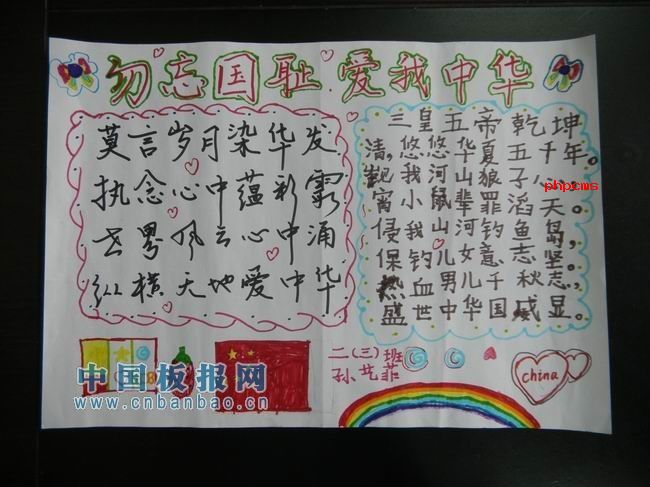 勿忘国耻 爱我中华
莫言岁月染华发
执念心中蕴彩
世界风云心中涌
纵横天地爱中华
三皇五帝乾坤
清，悠悠华夏五千年。
觊我河山狼子心，
宵小鼠辈罪滔天。
侵我山河钓鱼岛，
保钓儿女意志坚。
热血男儿千秋志，
盛世中华国威显。
phpcms
二(三)班
孙艺菲
china
中国板报网
www.cnbanbao.cn